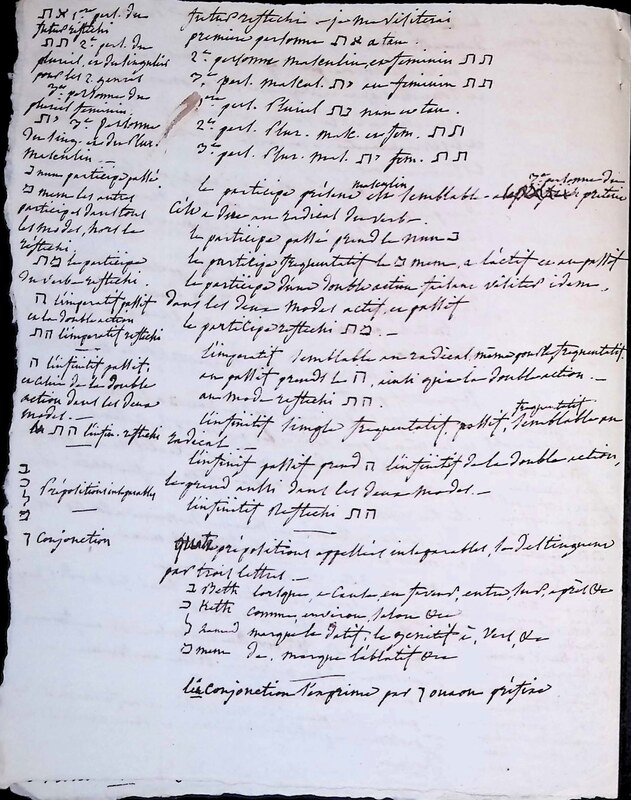 את 1re pers. du
futur réfléchi
תת 2e pers. du
pluriel, et du singulier
pour les 2 genres
3e personne du
pluriel féminin.
ית 3e personne
du sing. et du Plur.
masculin. —
נ nun participe passé.
מ mem les autres
participes dans tous
les modes, hors le
réfléchi.
מת le participe
du verbe réfléchi.
ה l'imperatif passif
et la double action
הת l'imperatif réfléchi
ה l'infinitif passif,
et celui de la double
action dans les deux
modes. —
הת l'infin. réfléchi
ב
כ
ל
מ
Prépositions inséparables
—
ו Conjonction
futur réfléchi — je me visiterai
première personne את a tau.
2e personne masculin, et feminin תת
3e pers. mascul. ית au feminin תת
1re pers. Pluriel נת nun et tau.
2e pers. Plur. mask. et fem. תת
3e pers. Plur. mas. ית fem. תת
le participe présent masculin est semblable 3e personne du prétérit
C'est a dire au radical du verb —
le participe passé prend le nun נ
le participe fréquentatif le מ mem, a l'actif et au passif
le participe d'une double action faisant visiter idem,
dans les deux modes actif et passif
le participe réfléchi מת. —
l'imperatif semblable au radical, même pour le fréquentatif.
au passif prends le ה, ainsi que la double action. —
au mode réfléchi הת.
l'infinitif simple frequentatif, passif, fréquentatif semblable au
radical —
l'infinit passif prend ה l'infinitif de la double action,
le prend aussi dans les deux modes. —
l'infinitif Réfléchi הת
prépositions appellées inséparables, se distinguent
par trois lettres —
ב Beth lorsque, a Cause, en faveur, entre, sur, après &c
כ Keth comme, environ, selon &c
ל Lamed marque le datif, le genitif à, vers, &c
מ mem de, marque l'ablatif &c
la Conjonction s'exprime par ו ouaou préfixe